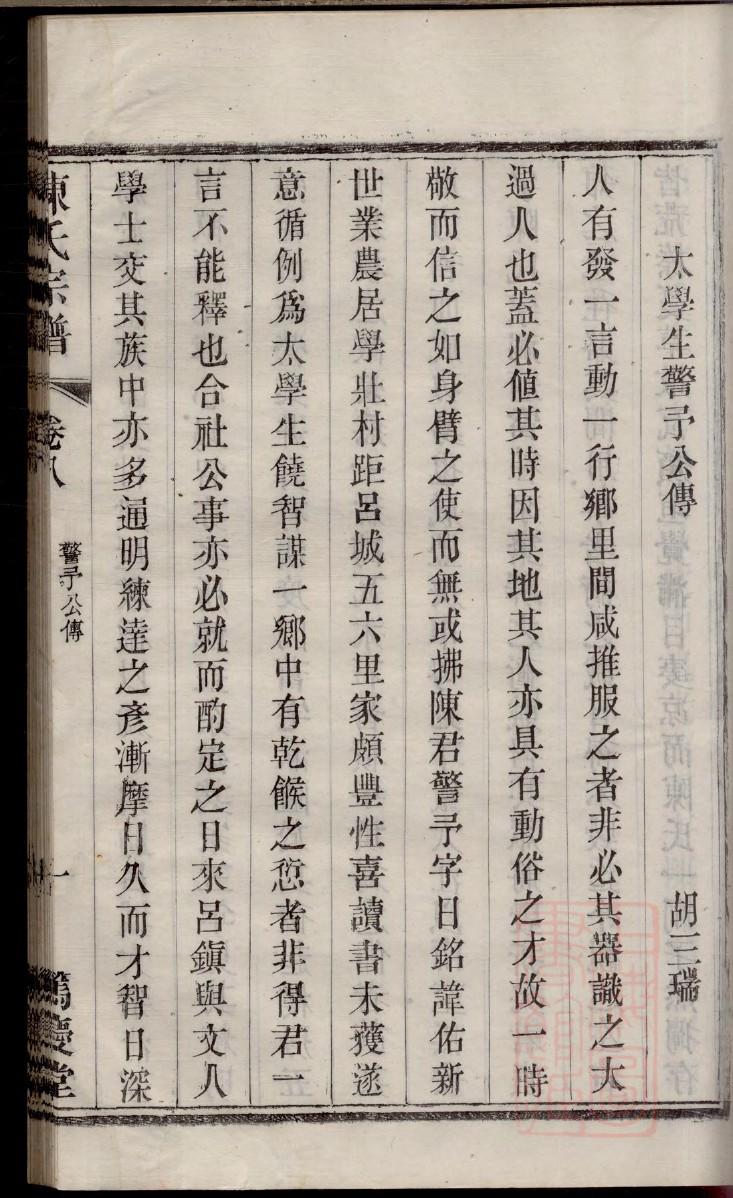 太學生警予公傳 胡三瑞
人有發一言動一行鄉里間咸推服之者非必其器識之大
過人也蓋必值其時因其地其人亦具有動俗之才故一時
敬而信之如身臂之使而無或拂陳君警予字日銘諱佑新
世業農居學壯村距呂城五六里家頗豐性喜讀書未獲遂
意循例爲太學生饒智謀一鄉中有乾餱之愆者非得君一
言不能釋也合社公事亦必就而酌定之日來呂鎭與文人
學士交其族中亦多通明練達之彥漸摩日久而才智日深
陳氏宗譜 卷八 警予公傳 一 篤慶堂